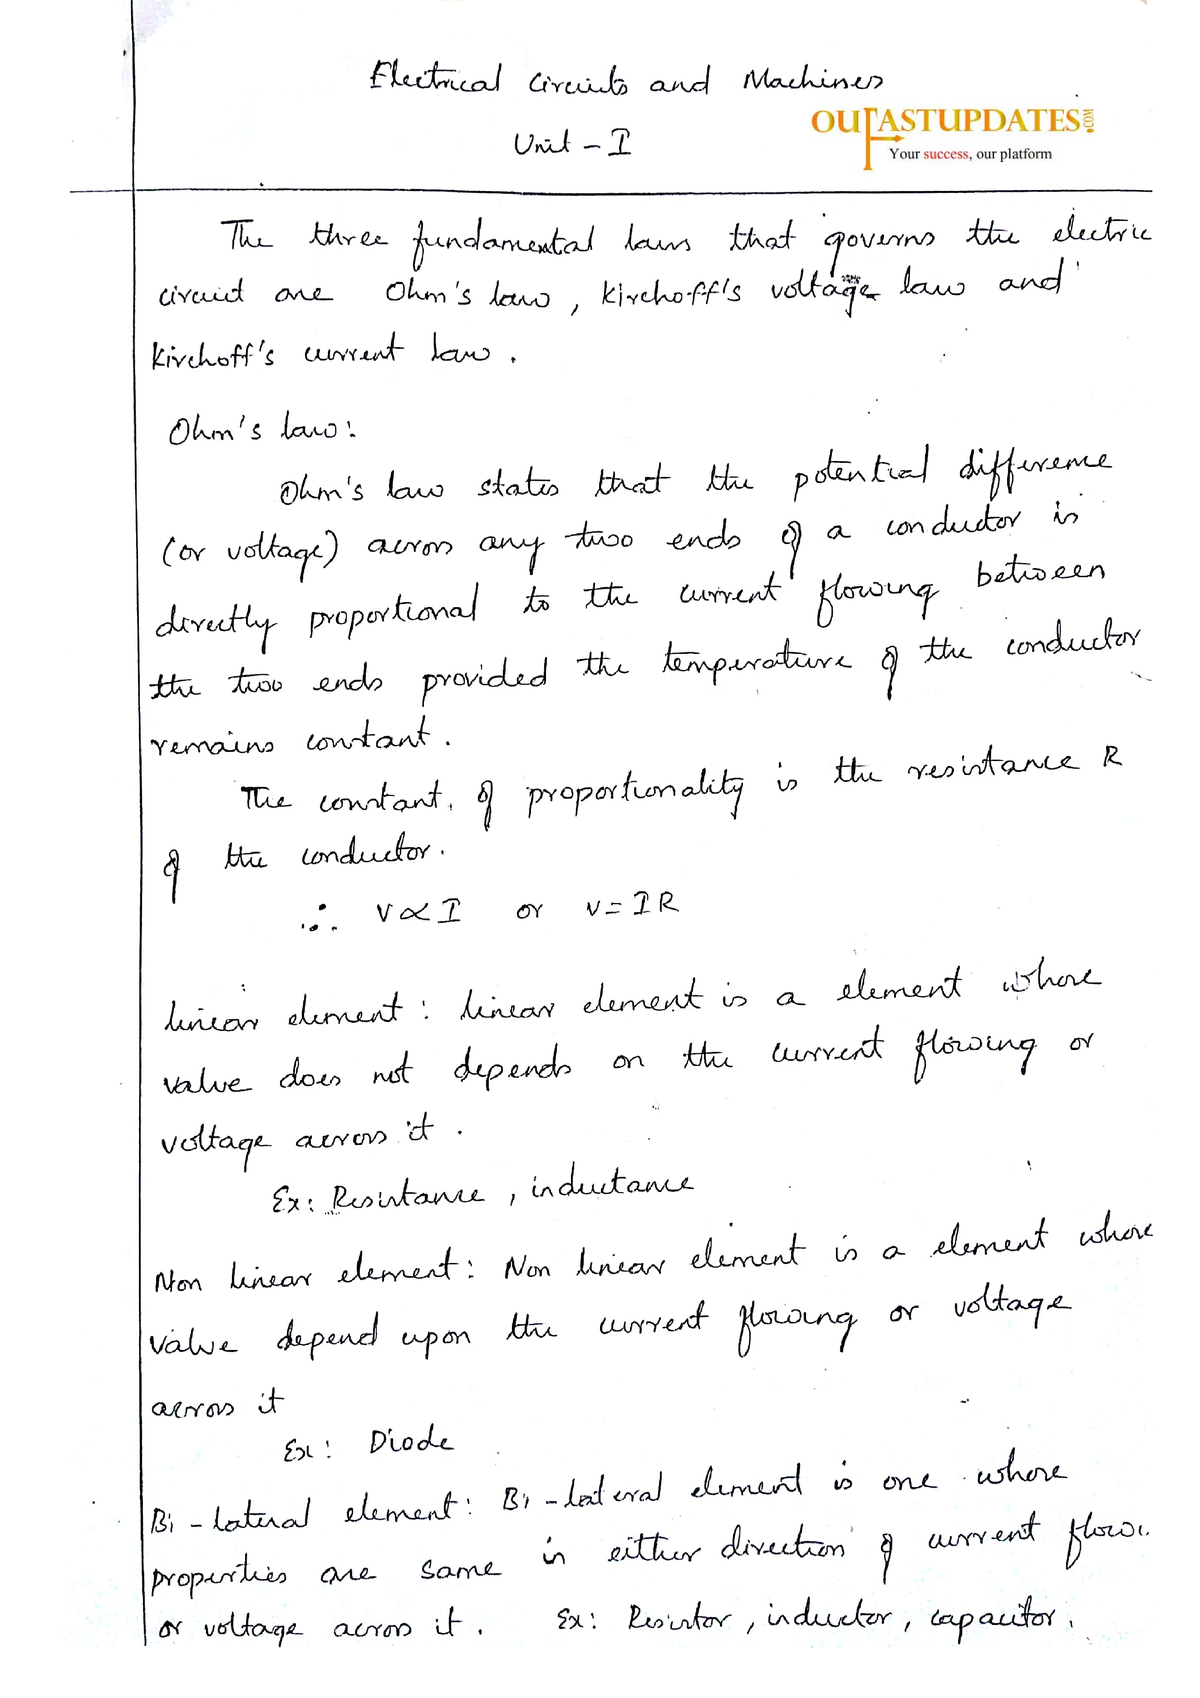 Electrical Circuits and Machines
OUFASTUPDATES.COM
Unit - I
Your success, our platform
The three fundamental laws that governs the electric
circuit are Ohm's law, Kirchoff's voltage law and
Kirchoff's current law.
Ohm's law:
Ohm's law states that the potential difference
(or voltage) across any two ends of a conductor is
directly proportional to the current flowing between
the two ends provided the temperature of the conductor
remains constant.
The constant of proportionality is the resistance R
of the conductor.
∴ V ∝ I or V = IR
linear element: linear element is a element whose
value does not depends on the current flowing or
voltage across it.
Ex: Resistance, inductance
Non linear element: Non linear element is a element whose
value depend upon the current flowing or voltage
across it
Ex: Diode
Bi-lateral element: Bi-lateral element is one whose
properties are same in either direction of current flow
or voltage across it. Ex: Resistor, inductor, capacitor.